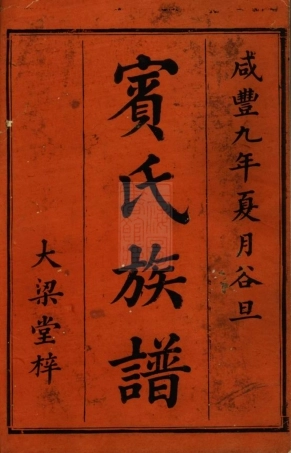 咸豐九年夏月谷旦
賓氏族譜
大梁堂梓